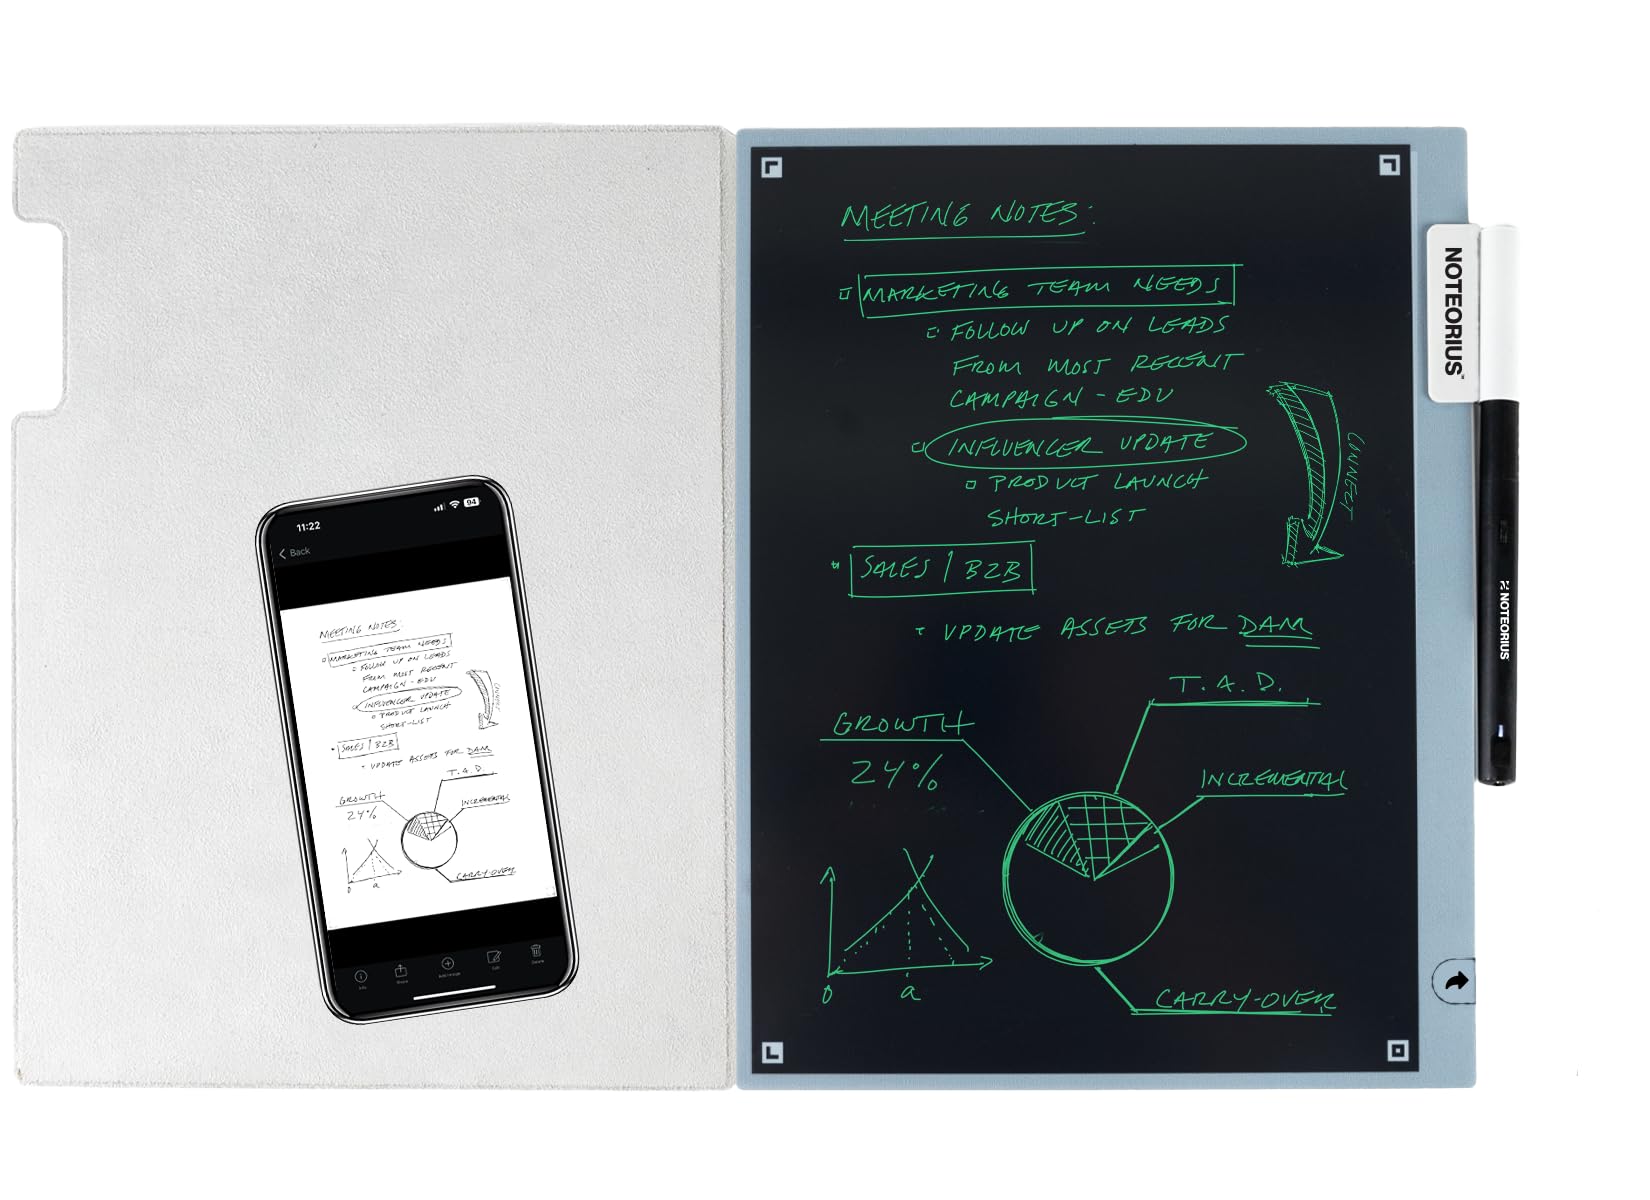 MEETING NOTES:
MARKETING TEAM NEEDS
FOLLOW UP ON LEADS
FROM MOST RECENT
CAMPAIGN - EDU
INFLUENCER UPDATE
PRODUCT LAUNCH
SHORT-LIST
CONNECT
SALES / B2B
UPDATE ASSETS FOR DAM
T.A.D.
GROWTH
24%
INCREMENTAL
CARRY-OVER
0 a
NOTEORIUS™
NOTEORIUS
11:22
94
Back
MEETING NOTES:
MARKETING TEAM NEEDS
FOLLOW UP ON LEADS
FROM MOST RECENT
CAMPAIGN - EDU
INFLUENCER UPDATE
PRODUCT LAUNCH
SHORT-LIST
CONNECT
SALES / B2B
UPDATE ASSETS FOR DAM
T.A.D.
GROWTH
24%
INCREMENTAL
CARRY-OVER
0 a
Info
Share
Edit
Delete